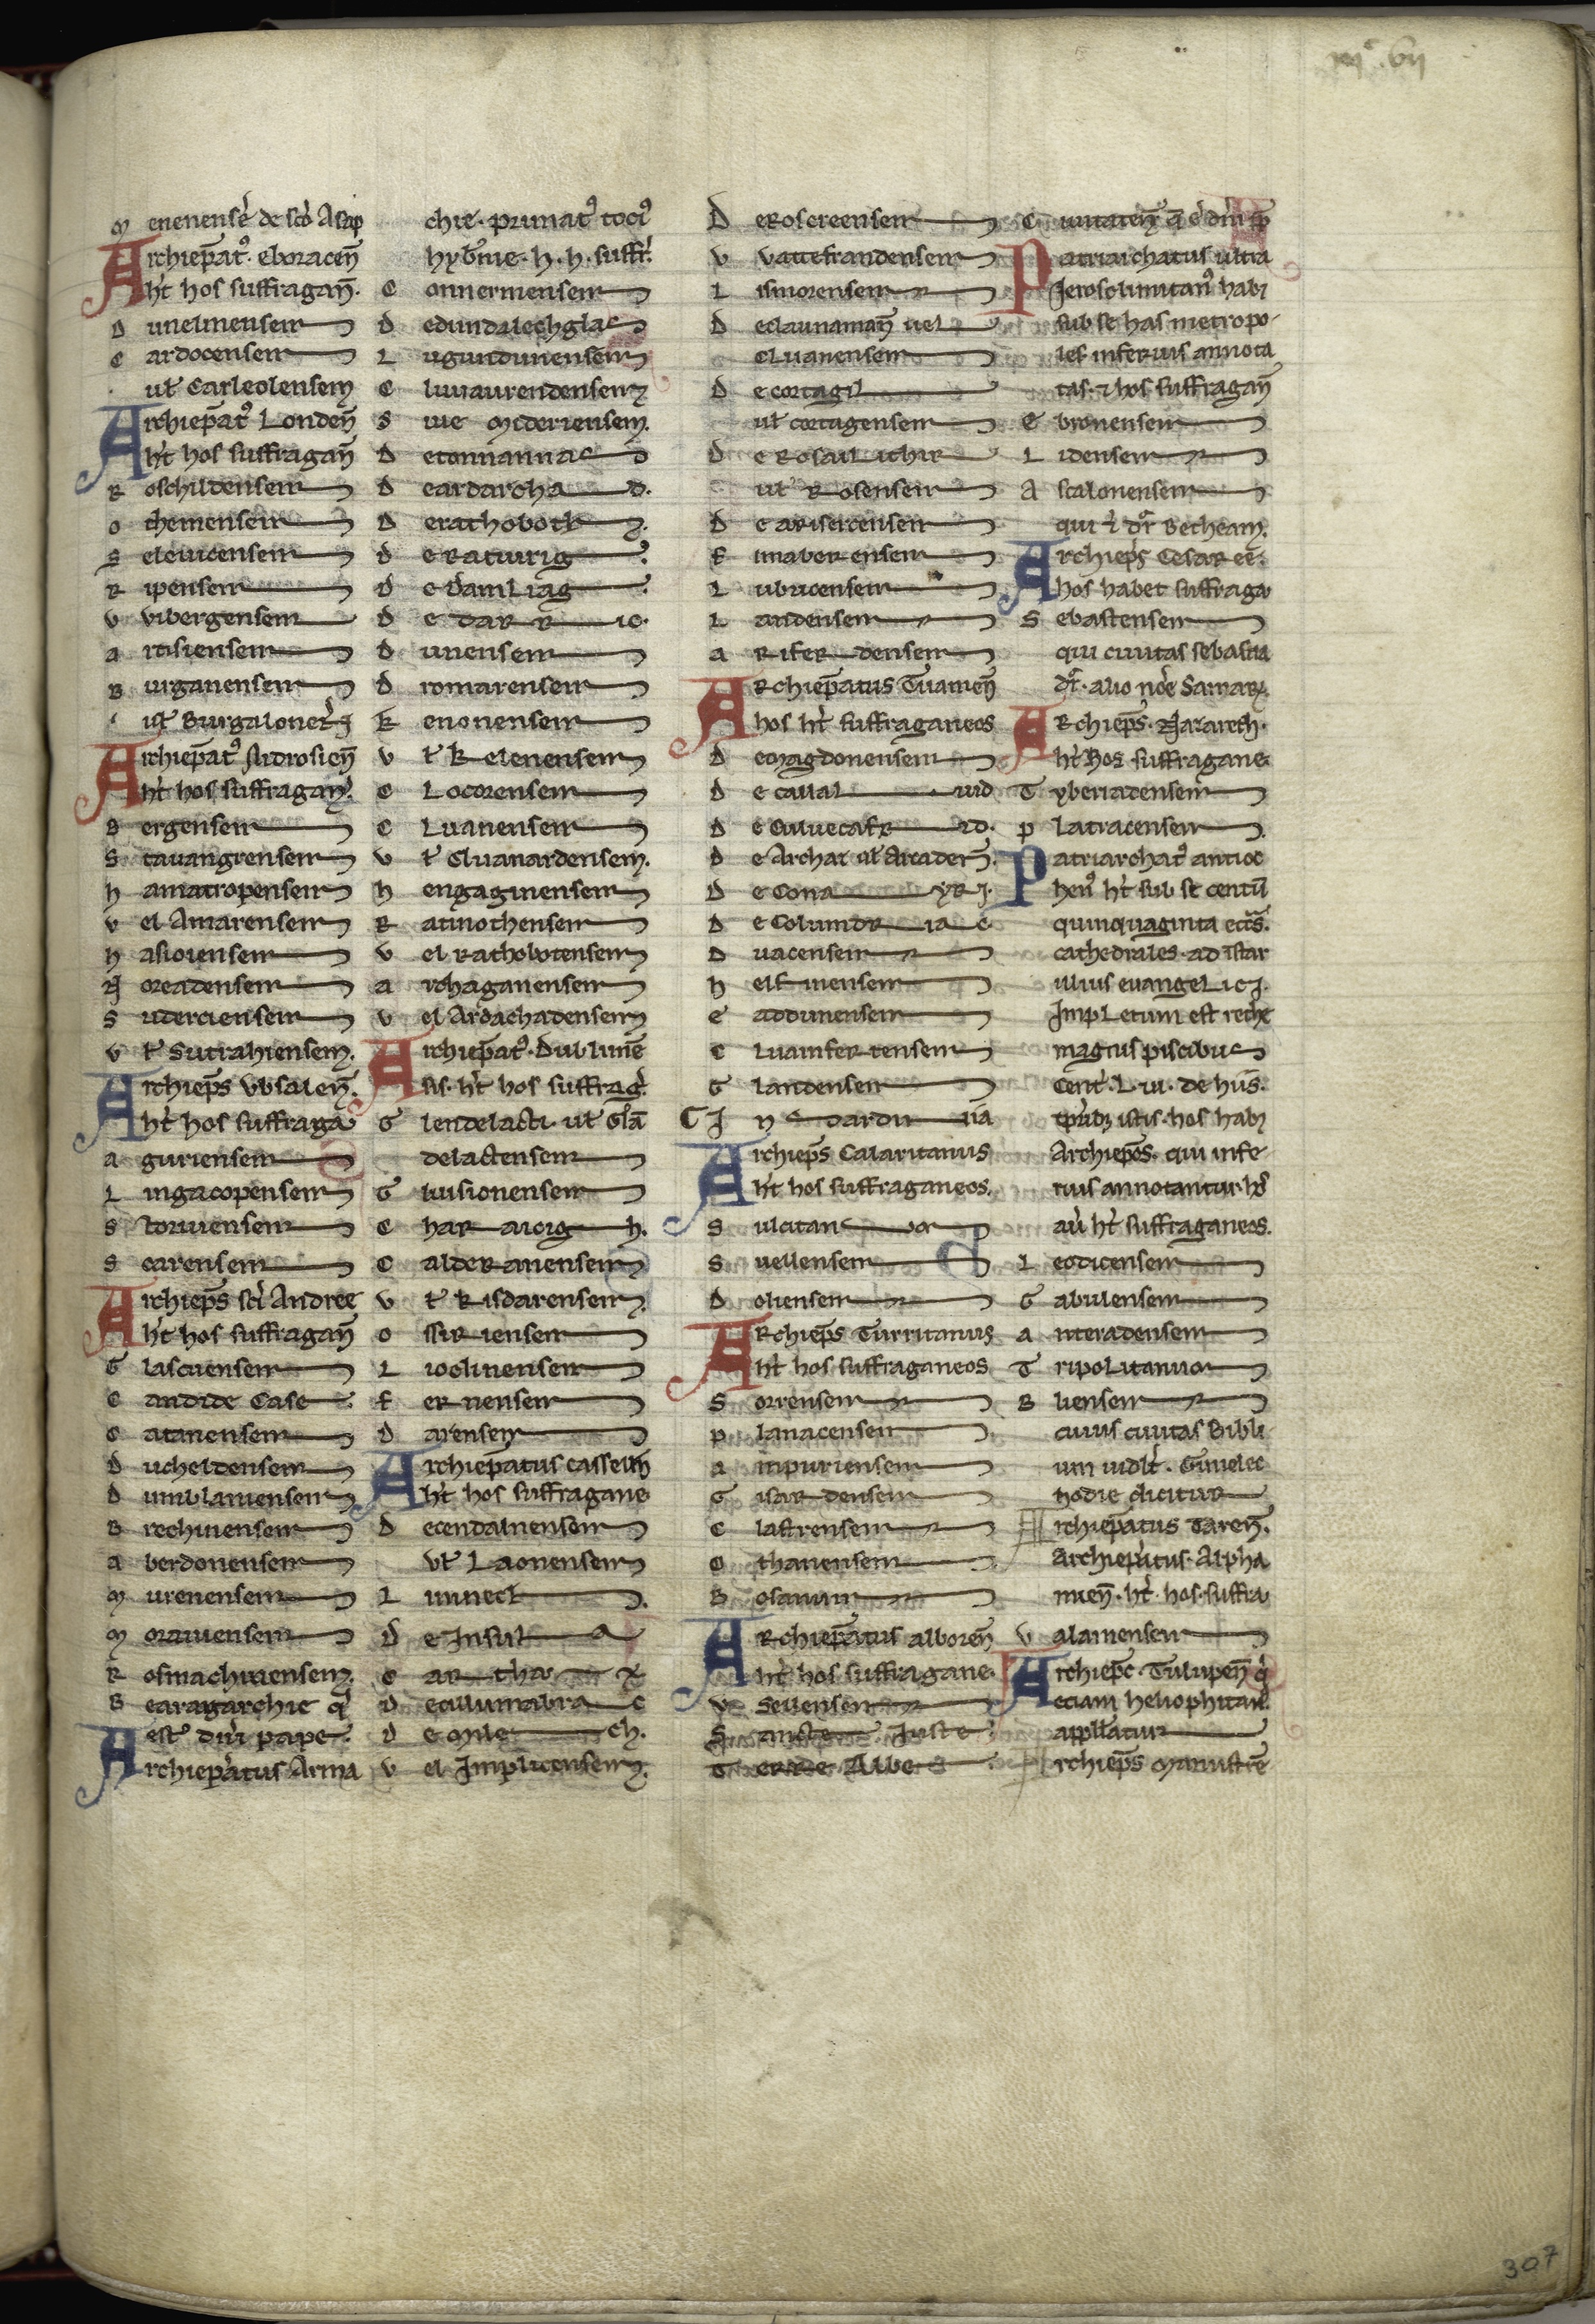 iijc.vij
M enenensē de scō Asap
Archiep̄at⁹. eboracen̄
hт̄ hos suffragan̄.
D unelmensem
C ardocensem
ul̄ Carleolensem
Archiep̄at⁹ Londen̄
hт̄ hos suffragan̄
R oschildensem
O themensem
S eleuicensem
R ipensem
V vibergensem
A rusiensem
B urganensem
Archiep̄at⁹ Nidrosien̄
hт̄ hos suffragan̄.
B ergensem
S tauangrensem
H amatropensem
V el Amarensem
H asioiensem
N oreadensem
S uderciensem
V t̄ Sutrahiensem.
Archiep̄s Vbsalen̄.
hт̄ hos suffraga
A guriensem
L ingacopensem
S toriuensem
S carensem
Archiep̄s sc̄i Andree
hт̄ hos suffragan̄
G lascuensem
C andide Case
C atanensem
D ucheldensem
D umblanensem
B rechinensem
A berdonensem
M urenensem
M orauiensem
R osmachinensem.
B earagarchic q̄
est⁹ dn̄i pape.
Archiep̄atus Arma
chie. primat⁹ toci⁹
hyb̄nie. h. h. suffr̄.
C onnermensem
D edundalechglas
L ugundunensem
C luuaurendensem
S iue Mideriensem.
D econnannas
D eardarcha d.
D erathoboth
D eraturig
D e damliag
D e dar R ic.
D unensem
D romarensem
K enonensem
V t̄ Kelenensem
C Locorensem
C Luanensem
V t̄ Cluanardensem.
H engaginensem
R atinothensem
V el Rathobotensem
A rchaganensem
V el Ardachadensem
Archiep̄at⁹. Dublinē
sis. hт̄ hos suffraḡ.
G lendelacti. ul̄ Glā
delactensem
G luisionensem
C har aioig h.
C alderanensem
V t̄ Kisdarensem
O ssiriensem
L ioclinensem
F ernensem
D arensem
Archiep̄atus casselin̄
hт̄ hos suffragane
D ecendaluensem
Vt̄ Laonensem
L unnech
D e Insula
C ar tha x
D eciluimabra c
D e Mile ch.
V el Implicensem.
D eRoscreensem
V Vattefrandensem
L ismorensem
D eclaunaman̄ uel
CLuanensem
D e cortagi
ul̄ cortagensem
D e Rosailithir
ul̄ Rosensem
D e arisercensem
F inaberensem
L ubricensem
L andensem
A Riferdensem
ARchiep̄atus Tuamen̄
hos hт̄ suffraganeos
D emagdonensem
D e caual uid
D e Culuecafr id.
D e Archat ul̄ Arcaden̄.
D e Cona yri.
D e Columdr ia c
D uacensem
H elfinensem
E addunensem
C Luamfertensem
G landensem
C I n dardu ua
Archiep̄s Calaritanus
hт̄ hos suffraganeos.
S ulcitan or p
S uellensem
D oliensem
ARchiep̄s Turritanus
hт̄ hos suffraganeos
S orrensem
P lanacensem
A mpuriensem
G isardensem
C lastrensem
O thanensem
B osanum
ARchiep̄atus alboren̄
hт̄ hos suffragane.
V sellensem
S ancte Iuste
T erre Albe
C iuitaten̄. q̄ ē dn̄i p̄p
Patriarchatus ultra
Ierosolimitan⁹ habꝫ
sub se has metropo
les inferius annota
tas. ⁊ hos suffragan̄
E bronensem
L idensem
A scalonensem
qui ⁊ dr̄ Betheam.
Archiep̄s Cesar eē.
hos habet suffraga
S ebastensem
qui ciuitas sebastia
dr̄. alio nōe Samarꝫ.
ARchiep̄s. Nazareth.
hт̄ hos suffragane
T yberiadensem
P latracensem
Patriarchat⁹ antioc
hen⁹ hт̄ sub se centū
quinquaginta ecc̄s.
cathedrales. ad istar
illius euangelici.
Impletum est rethe
magnis piscibus
Cent̄. L. iii. de hiis.
archiep̄os. qui infe
rius annotantur. hos
aū hт̄ suffraganeos.
L eodicensem
G abulensem
A nteradensem
T ripolitanuor
B liensem
cuius ciuitas Bibli
um uidlт̄. Gimelec
hodie dicitur
Archiep̄atus Taren̄.
Archiep̄atus. Alpha
mien̄. hт̄. hos. suffra
V alaniensem
Archiep̄c. Tulupen̄ q̄
eciam heliophitan⁹.
appll̄atur
Archiep̄s Mamistrē
307